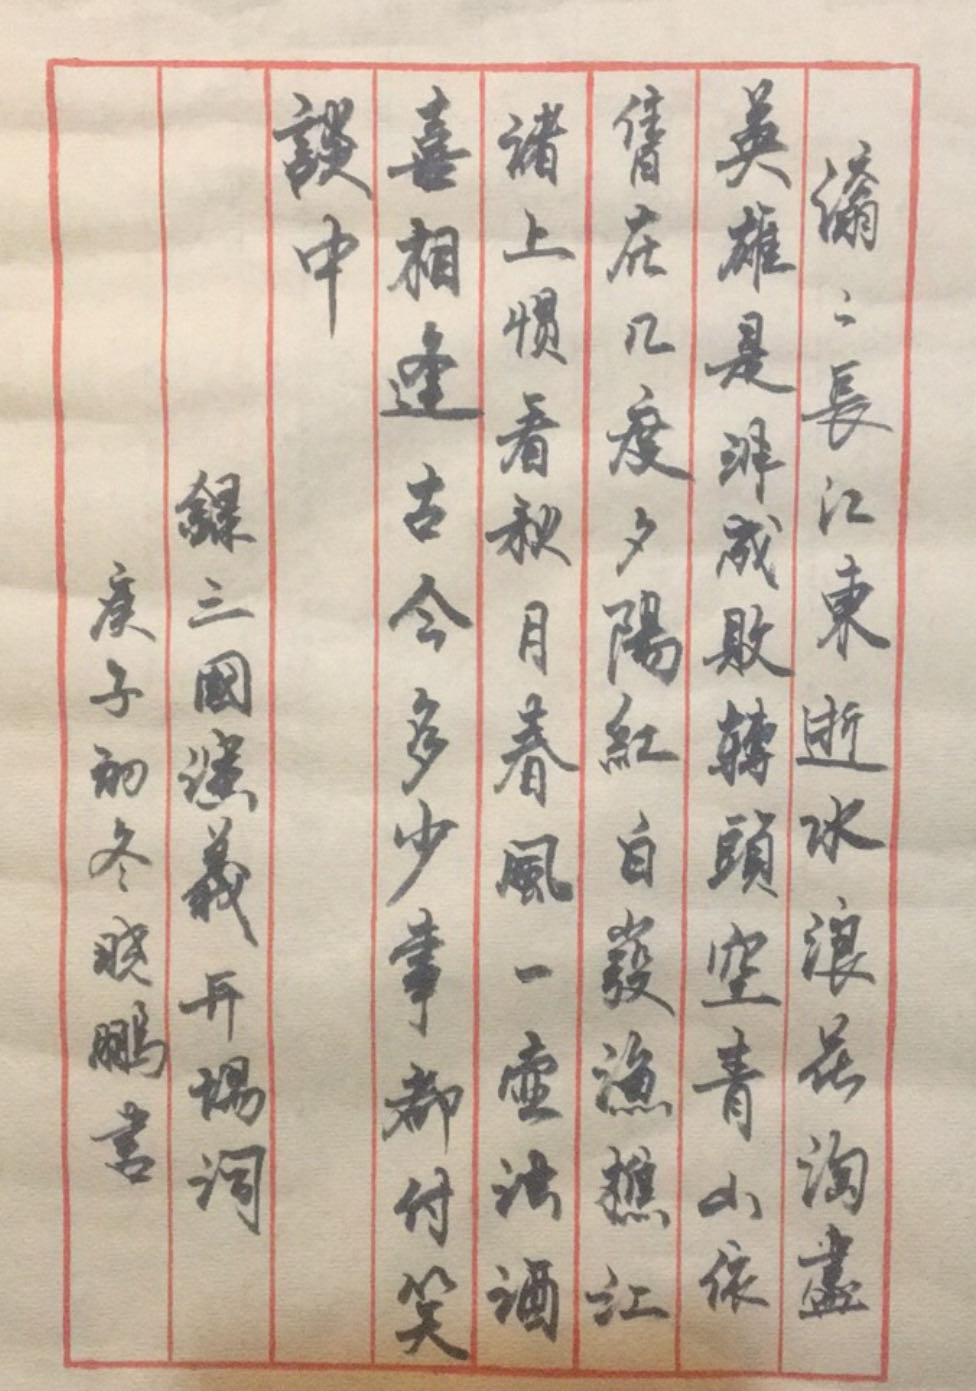 滚〻長江東逝水浪花淘盡
英雄是非成敗轉頭空青山依
舊在几度夕陽紅白發漁樵江
渚上慣看秋月春風一壺浊酒
喜相逢古今多少事都付笑
談中
録三國演義开場詞
庚子初冬晓鵬書